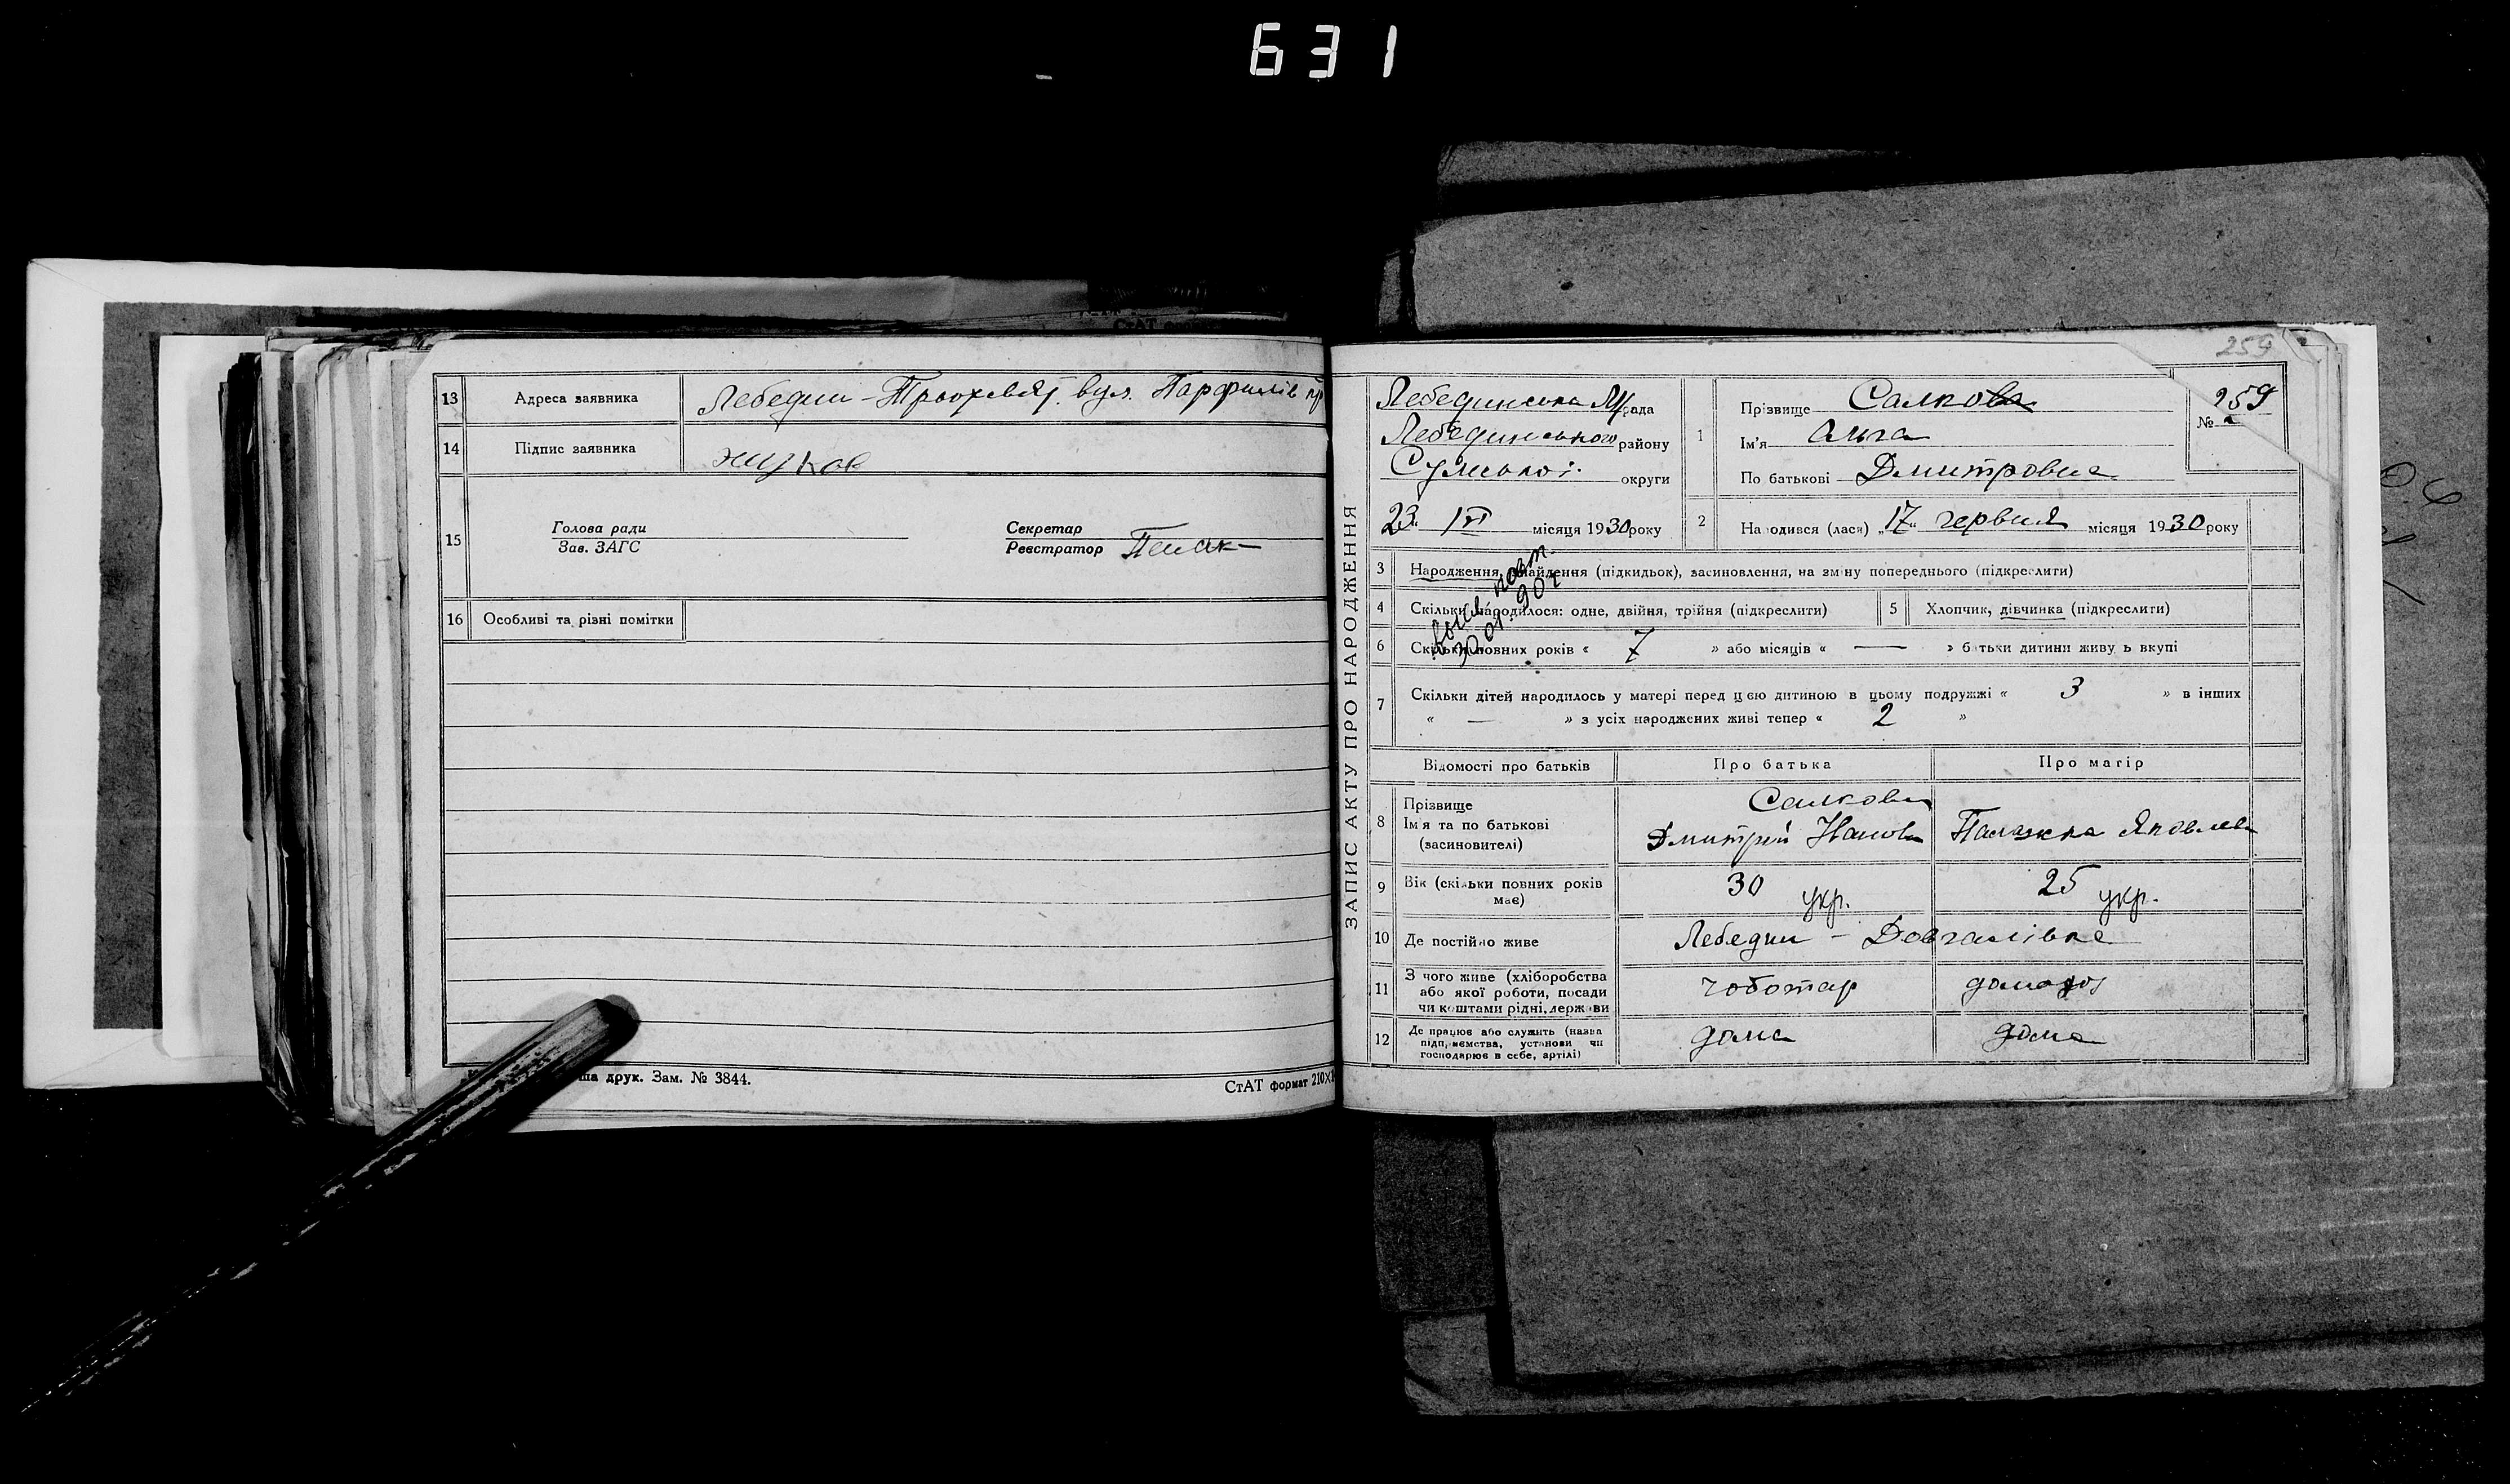 631
13 Адреса заявника Лебедин - Трьохсвят. вул. Парфилів пр
14 Підпис заявника Жуков
15 Голова ради
Зав. ЗАГС
Секретар
Реєстратор
16 Особливі та різні помітки
друк. Зам. № 3844.
СтАТ формат 210×1
259
ЗАПИС АКТУ ПРО НАРОДЖЕННЯ
Лебединська М/рада
Лебединського району
Сумської округи
23 " VI місяця 1930 року
1 Прізвище Салкова
Ім'я Ольга
По батькові Дмитровна
№ 259
2 Народився (лася) „17" червня місяця 1930 року
3 Народження, знайдення (підкидьок), засиновлення, на зміну попереднього (підкреслити)
4 Скільки народилося: одне, двійня, трійня (підкреслити) 5 Хлопчик, дівчинка (підкреслити)
6 Скільки повних років « 7 » або місяців « — » батьки дитини живуть вкупі
7 Скільки дітей народилось у матері перед цією дитиною в цьому подружжі « 3 » в інших
« — » з усіх народжених живі тепер « 2 »
Відомості про батьків Про батька Про матір
8 Прізвище
Ім'я та по батькові
(засиновителі)
Салкови
Дмитрий Иванов Палажка Яковлев
9 Вік (скільки повних років має) 30 укр. 25 укр.
10 Де постійно живе Лебедин - Довгалівка
11 З чого живе (хліборобства
або якої роботи, посади
чи коштами рідні, держави
чоботар домогос
12 Де працює або служить (назва
підприємства, установи чи
господарює в себе, артілі)
дома дома